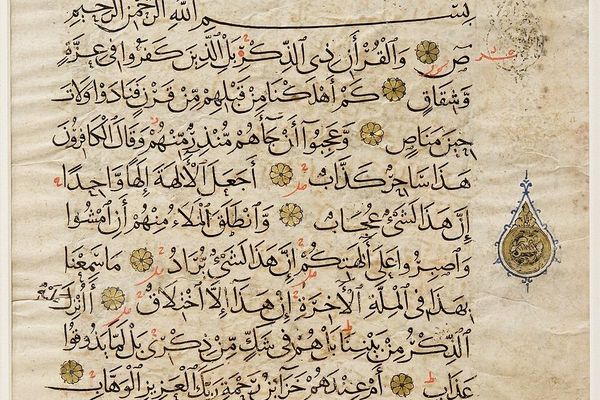 بِسْمِ اللَّهِ الرَّحْمَٰنِ الرَّحِيمِ
صٓ وَالْقُرْآنِ ذِي الذِّكْرِ بَلِ الَّذِينَ كَفَرُوا فِي عِزَّةٍ
وَشِقَاقٍ كَمْ أَهْلَكْنَا مِنْ قَبْلِهِمْ مِنْ قَرْنٍ فَنَادَوْا وَلَاتَ
حِينَ مَنَاصٍ وَعَجِبُوا أَنْ جَاءَهُمْ مُنْذِرٌ مِنْهُمْ وَقَالَ الْكَافِرُونَ
هَذَا سَاحِرٌ كَذَّابٌ أَجَعَلَ الْآلِهَةَ إِلَهًا وَاحِدًا
إِنَّ هَذَا لَشَيْءٌ عُجَابٌ وَانْطَلَقَ الْمَلَأُ مِنْهُمْ أَنِ امْشُوا
وَاصْبِرُوا عَلَى آلِهَتِكُمْ إِنَّ هَذَا لَشَيْءٌ يُرَادُ مَا سَمِعْنَا
بِهَذَا فِي الْمِلَّةِ الْآخِرَةِ إِنْ هَذَا إِلَّا اخْتِلَاقٌ أَأُنْزِلَ
الذِّكْرُ مِنْ بَيْنِنَا بَلْ هُمْ فِي شَكٍّ مِنْ ذِكْرِي بَلْ لَمَّا يَذُوقُوا
عَذَابِ أَمْ عِنْدَهُمْ خَزَائِنُ رَحْمَةِ رَبِّكَ الْعَزِيزِ الْوَهَّابِ